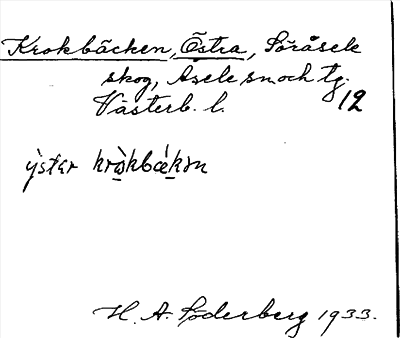 Krokbäcken, Östra, Söråsele
skog, Åsele sn och tg.
Västerb. l. 12
ỳstər krò̱kbæ̀kən
H. A. Söderberg 1933.